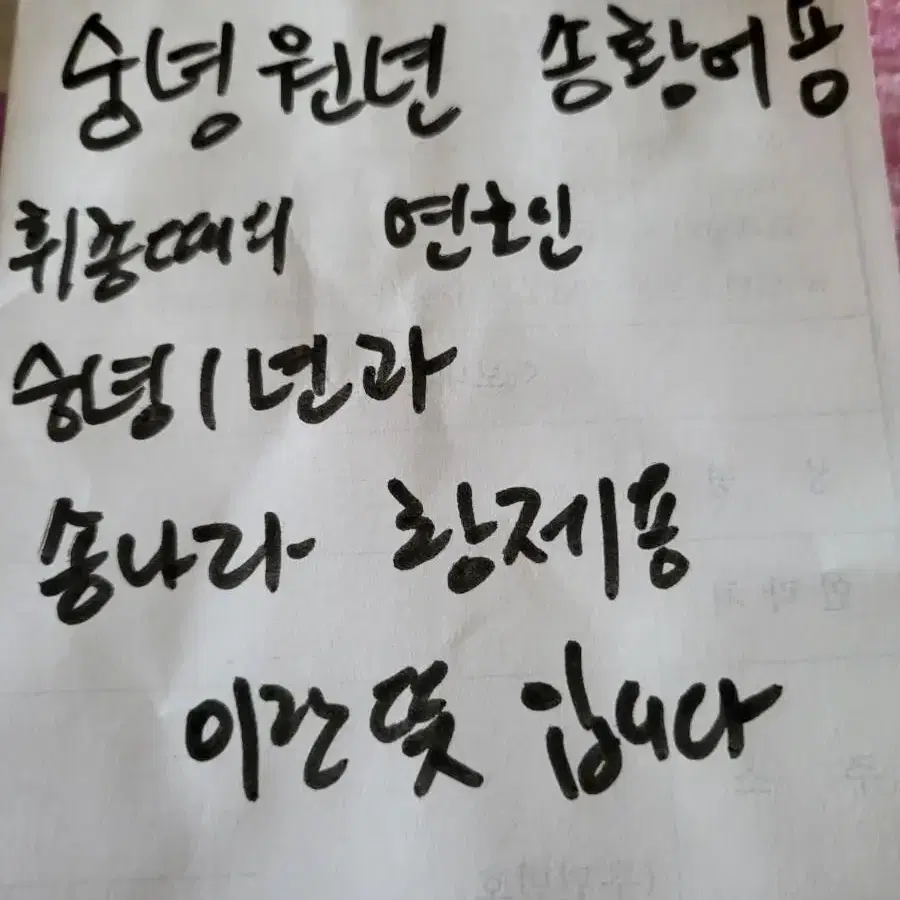 숭녕원년 송황어용
휘종때의 연호인
숭녕1년과
송나라 황제용
이란뜻 입니다